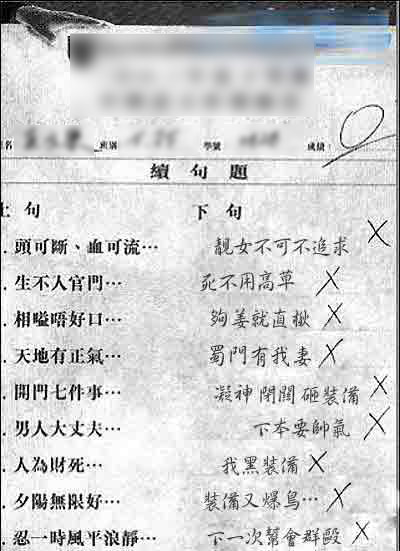 班別
學號
成績：
續句題
上句 下句
．頭可斷、血可流… 靚女不可不追求
．生不人官門… 死不用高草
．相嗌唔好口… 夠姜就直揪
．天地有正氣… 蜀門有我妻
．開門七件事… 凝神閉關砸裝備
．男人大丈夫… 下本要帥氣
．人為財死… 我黑裝備
．夕陽無限好… 裝備又爆鳥…
．忍一時風平浪靜… 下一次幫會群毆